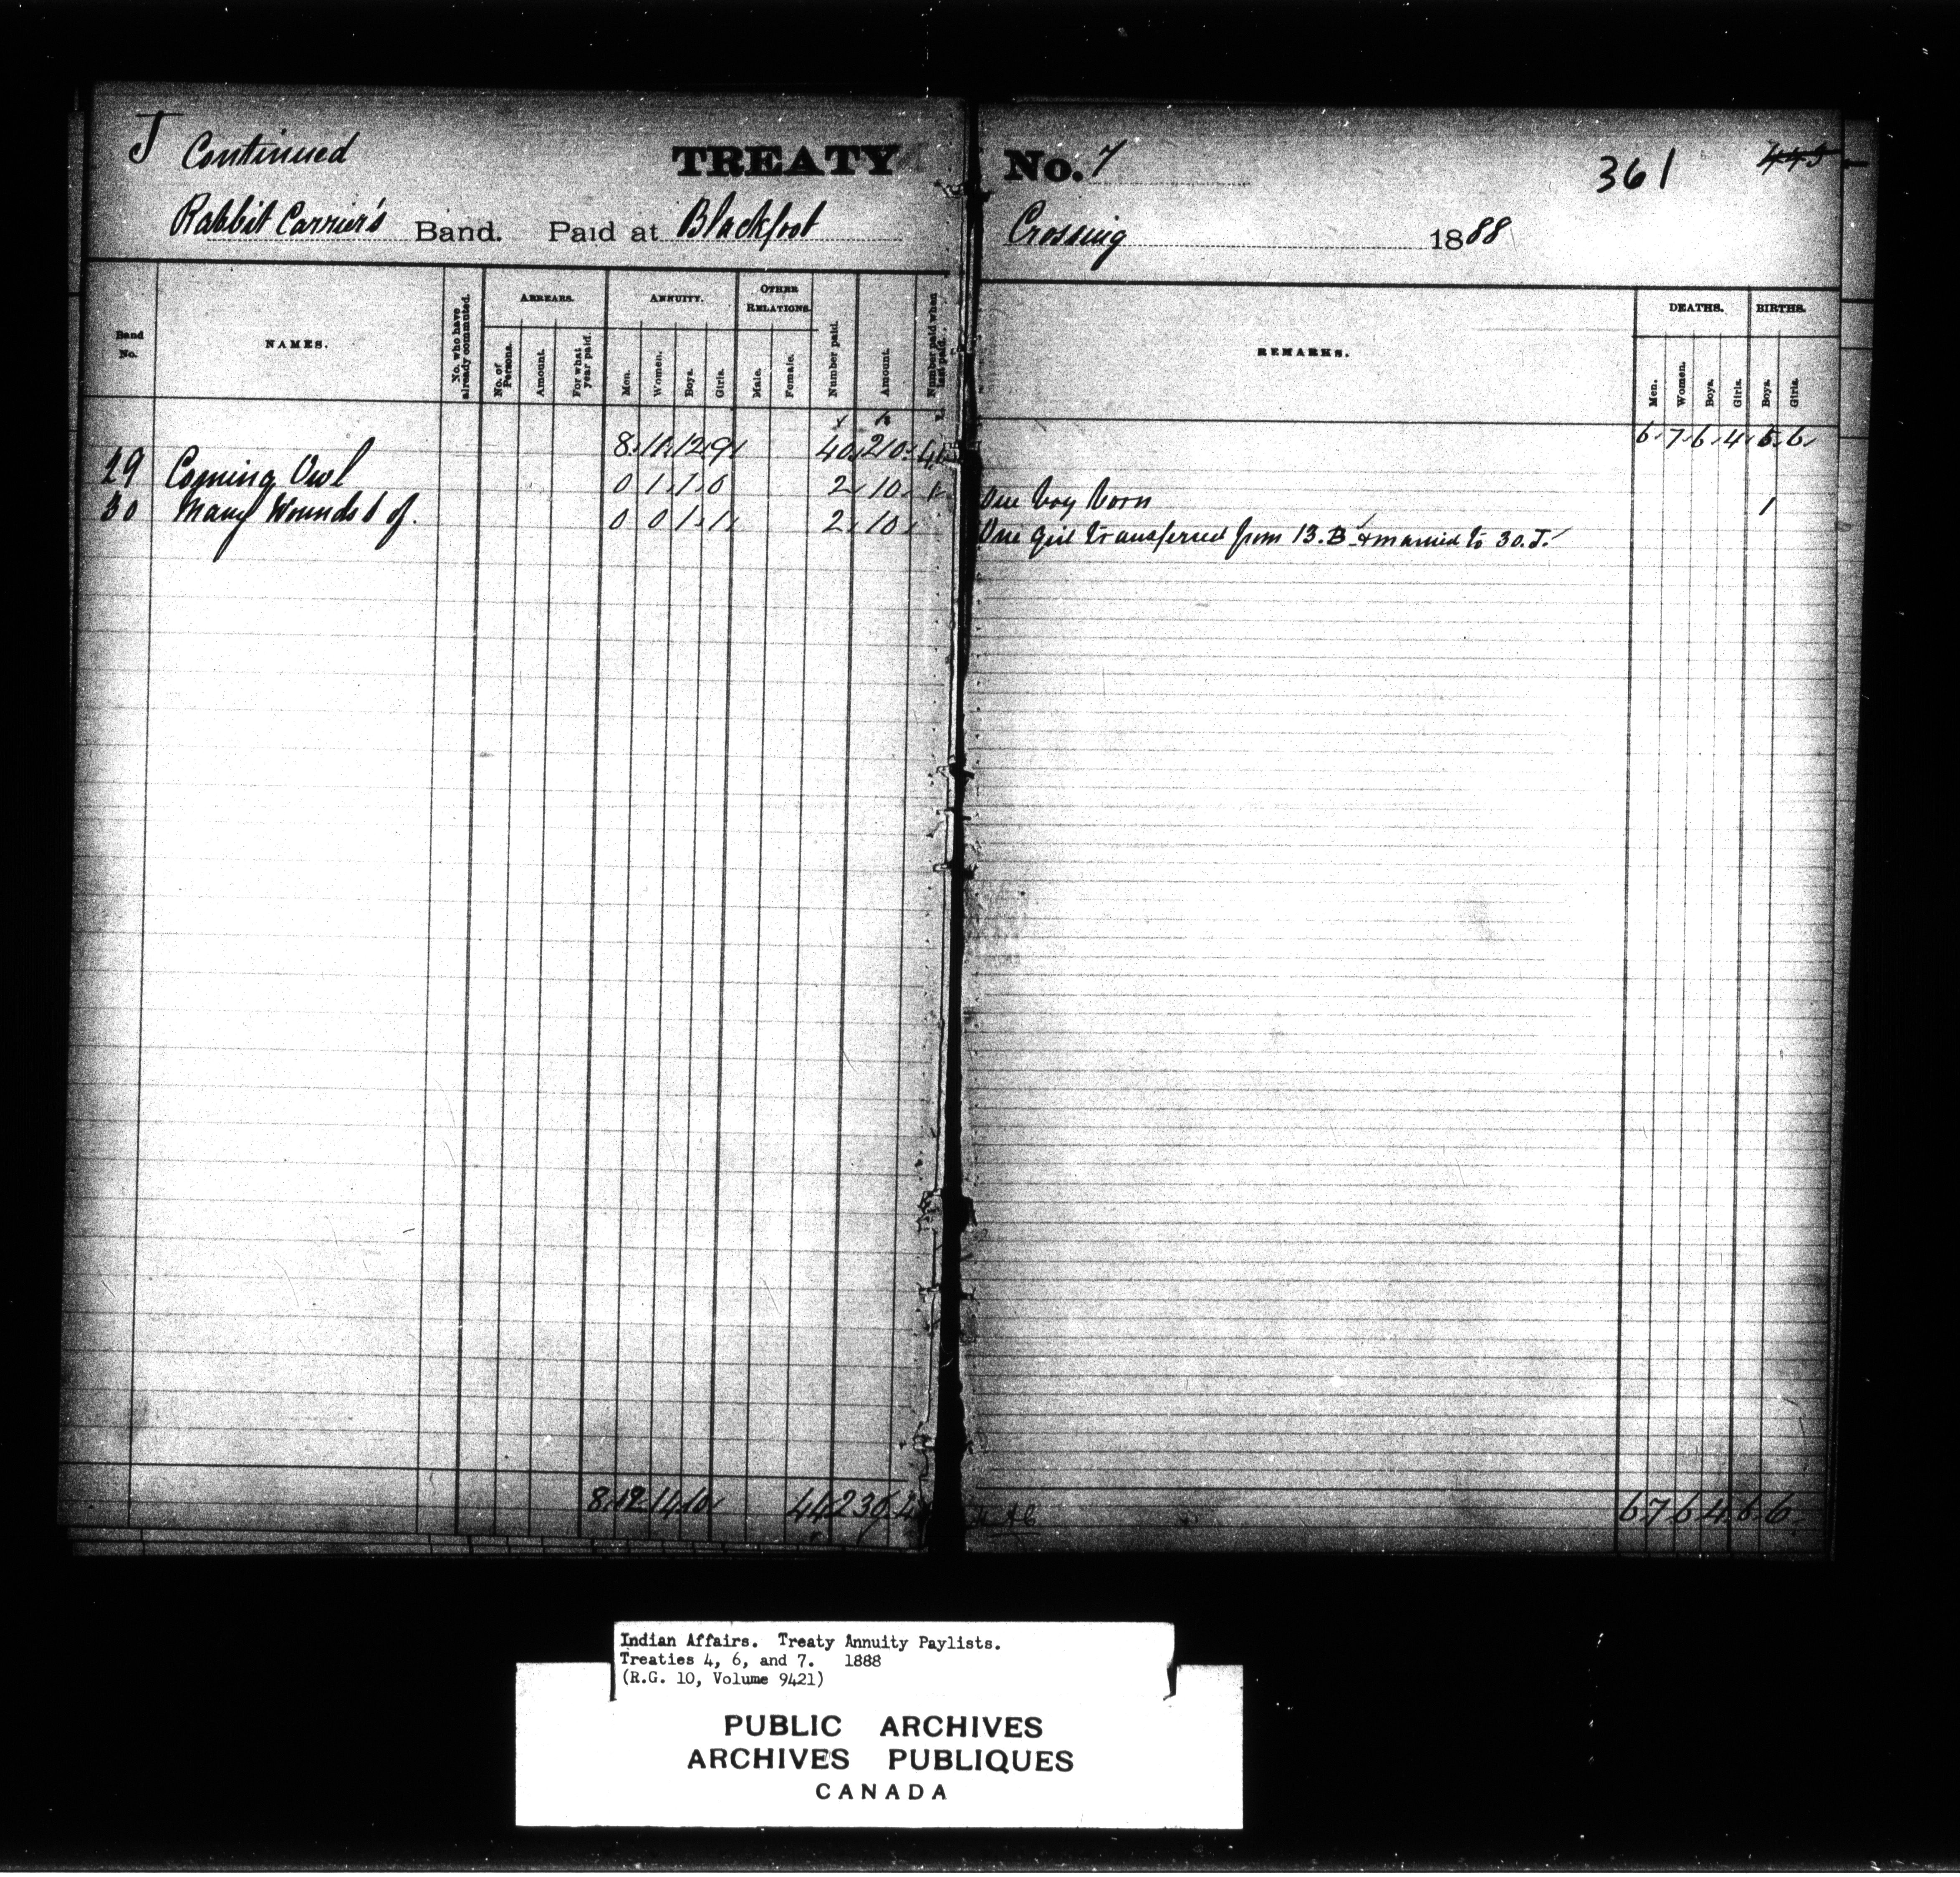 J Continued TREATY No. 7 361 445
Rabbit Carrier's Band. Paid at Blackfoot Crossing 1888
Band No. NAMES. No. who have already commuted. ARREARS. No. of Persons. Amount. For what year paid. ANNUITY. Men. Women. Boys. Girls. OTHER RELATIONS. Male. Female. Number paid. Amount. Number paid when last paid. REMARKS. DEATHS. Men. Women. Boys. Girls. BIRTHS. Boys. Girls.
8 11 12 9 40 210 6 7 6 4 5 6
29 Coming Owl 0 1 1 0 2 10 1 One boy born 1
30 Many Wounds 0 0 1 1 2 10 One girl transferred from 13. B & married to 30. J.
8 12 14 10 44 230 6 7 6 4 6 6
Indian Affairs. Treaty Annuity Paylists.
Treaties 4, 6, and 7. 1888
(R.G. 10, Volume 9421)
PUBLIC ARCHIVES
ARCHIVES PUBLIQUES
CANADA